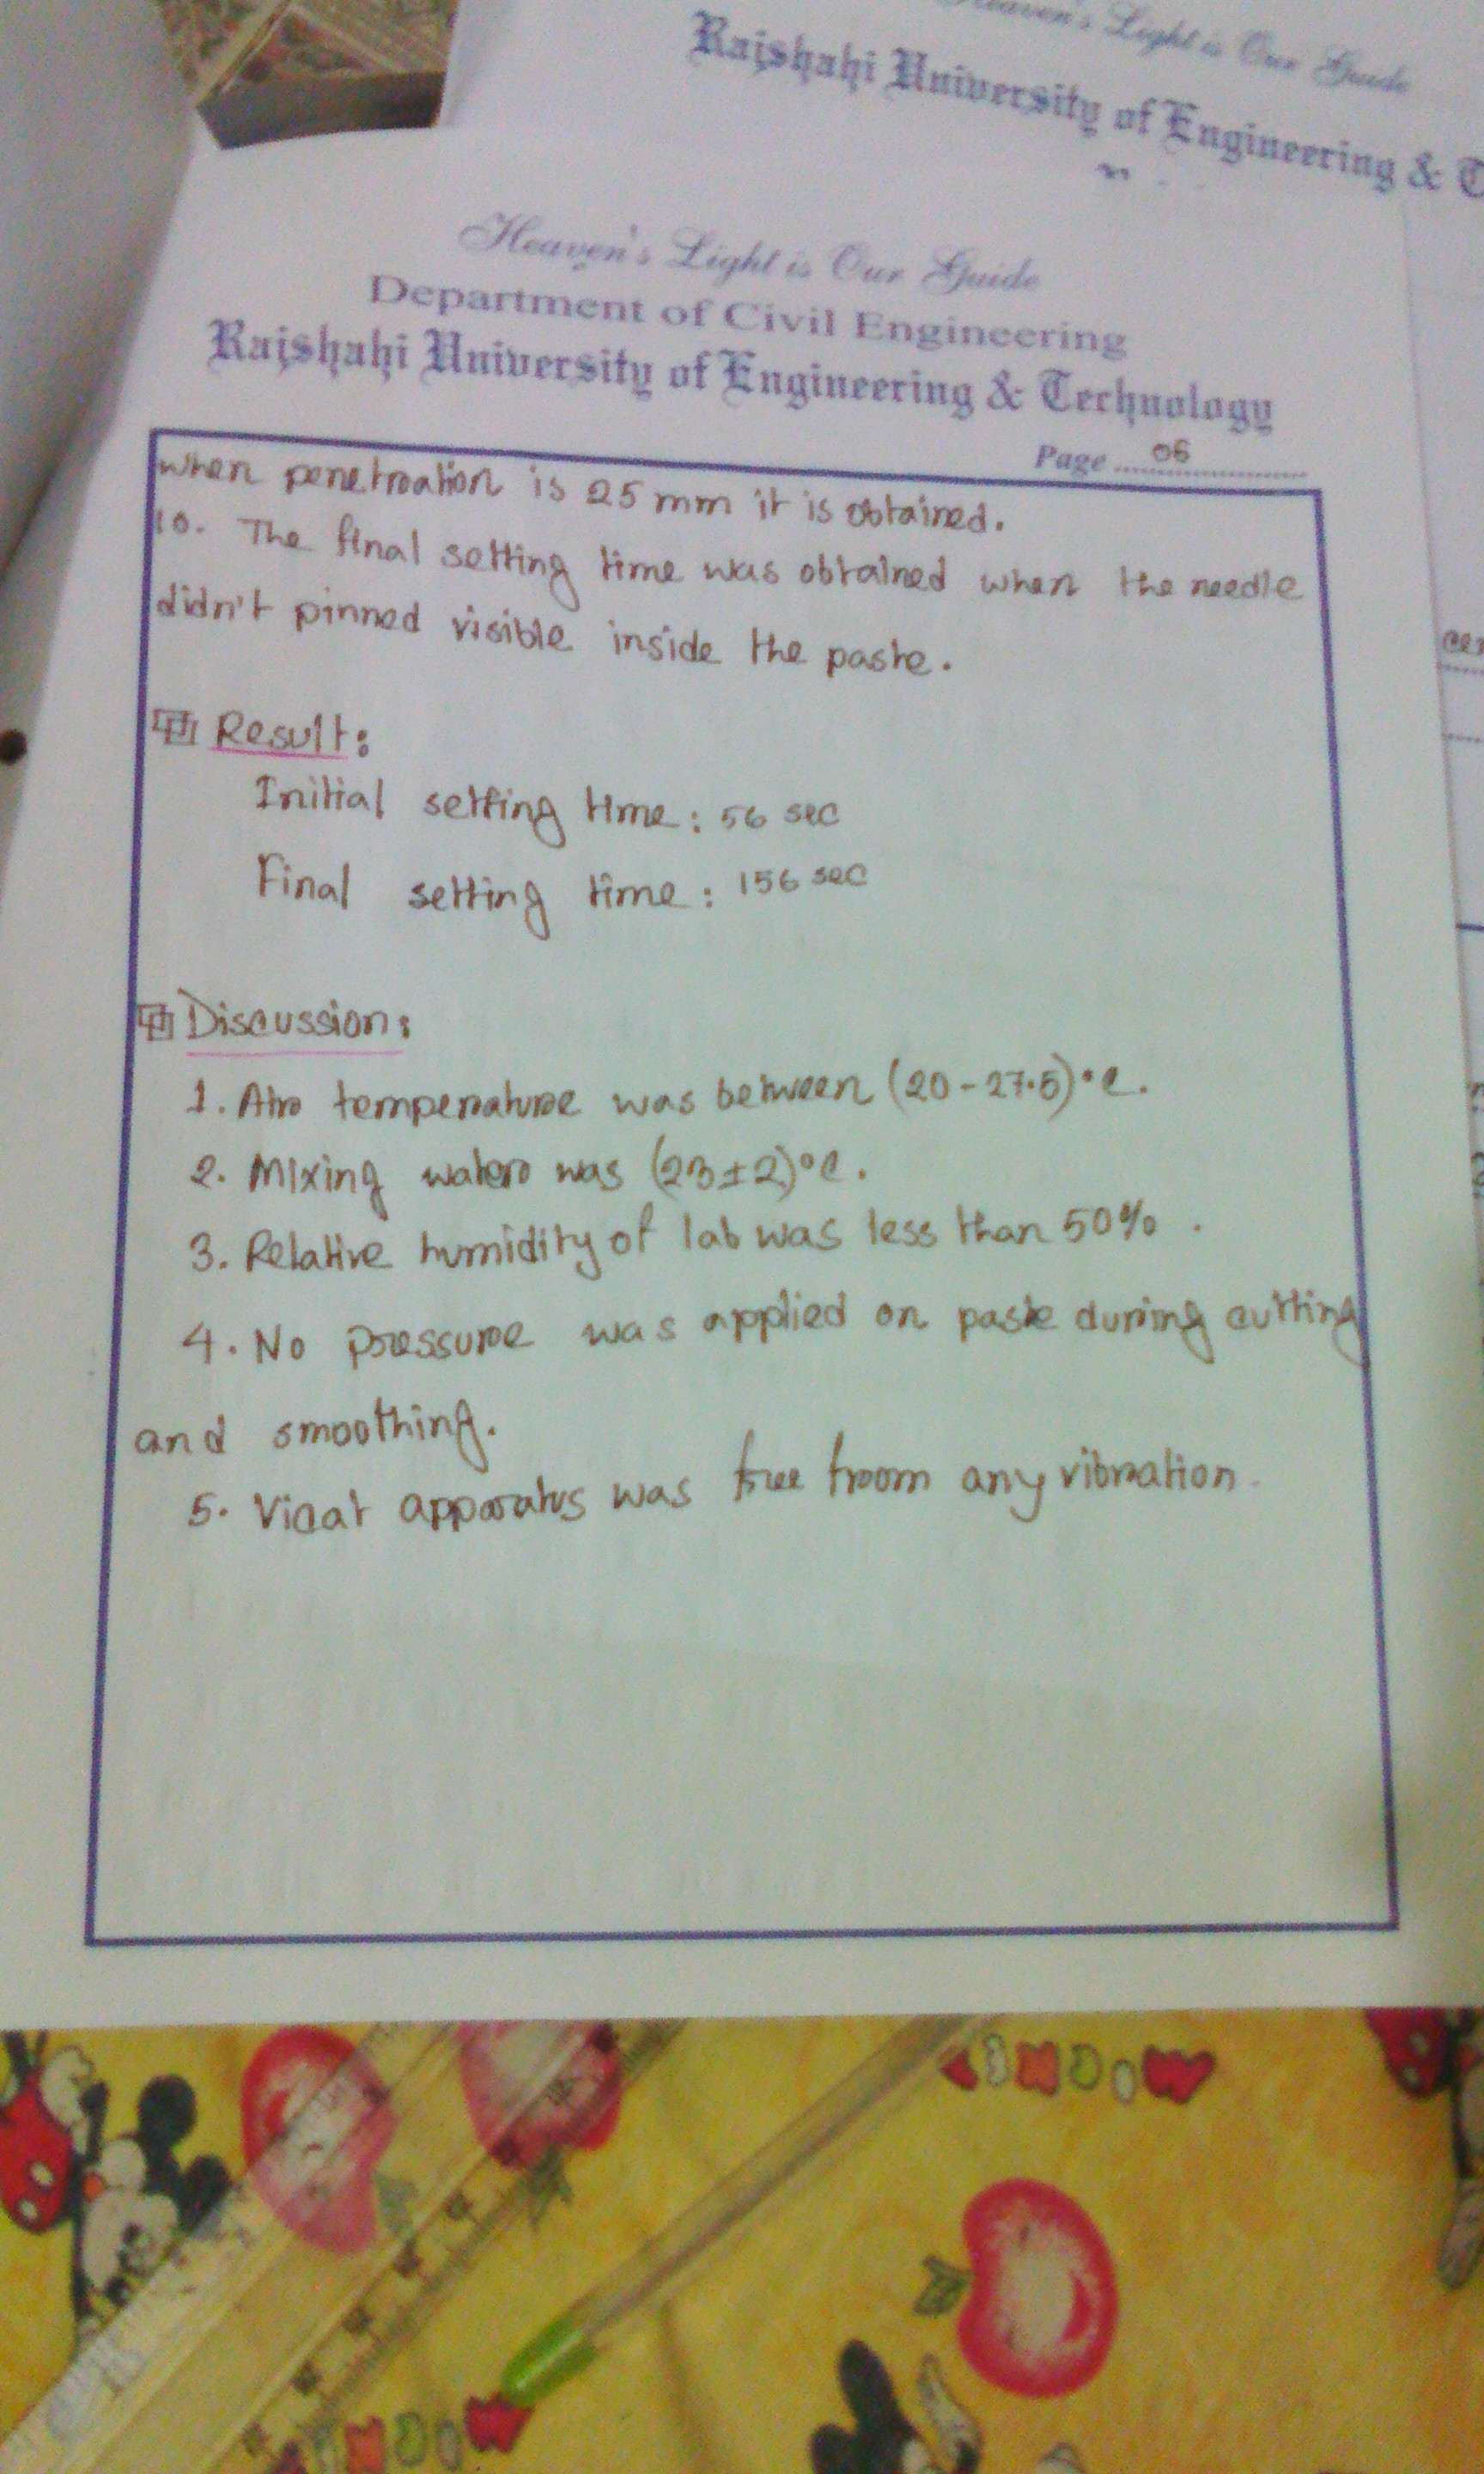 Heaven's Light is Our Guide
Rajshahi University of Engineering & T
Heaven's Light is Our Guide
Department of Civil Engineering
Rajshahi University of Engineering & Technology
Page 06
when penetration is 25 mm it is obtained.
10. The final setting time was obtained when the needle
didn't pinned visible inside the paste.
Result:
Initial setting time: 56 sec
Final setting time: 156 sec
Discussion:
1. Air temperature was between (20-27.5)°C.
2. Mixing water was (23±2)°C.
3. Relative humidity of lab was less than 50%.
4. No pressure was applied on paste during cutting
and smoothing.
5. Vicat apparatus was free from any vibration.